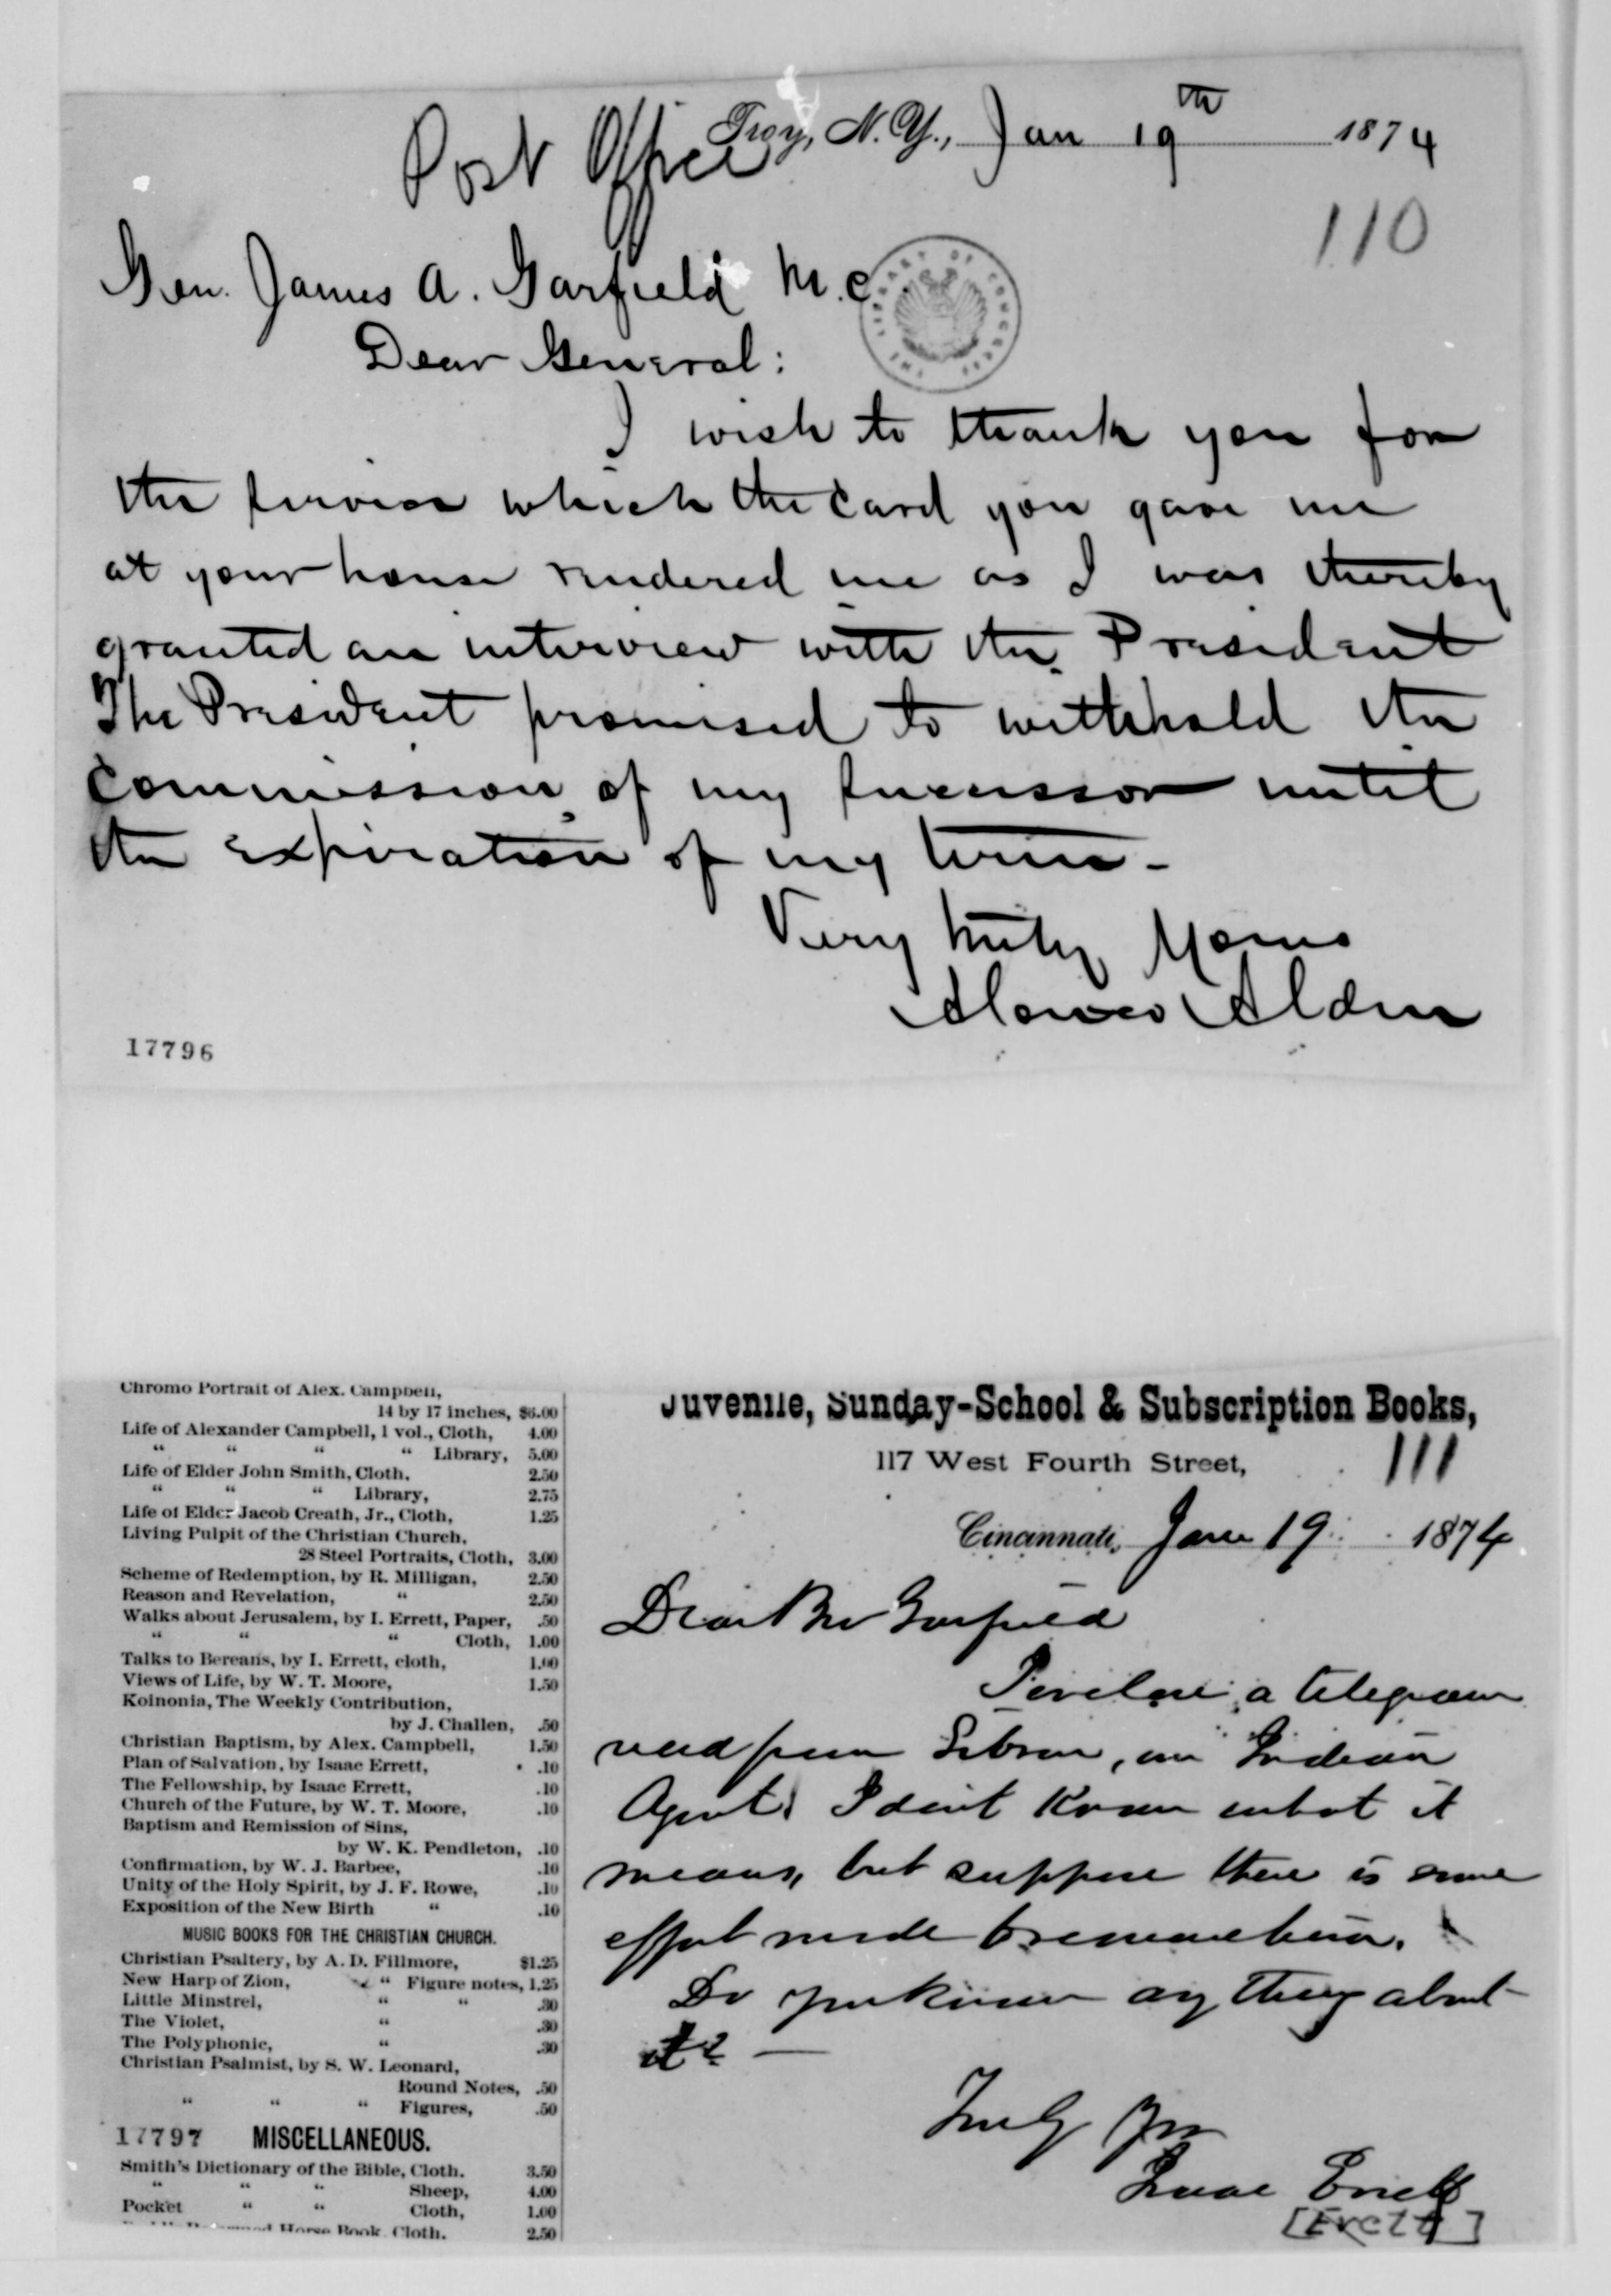 Post Office
Troy, N. Y., Jan 19th 1874
110
Gen. James A. Garfield M.C.
THE LIBRARY OF CONGRESS
Dear General:
I wish to thank you for
the service which the card you gave me
at your house rendered me as I was thereby
granted an interview with the President
The President promised to withhold the
commission of my successor until
the expiration of my term-
Very truly Yours
Alonzo Alden
17796
Chromo Portrait of Alex. Campbell,
14 by 17 inches, $6.00
Life of Alexander Campbell, 1 vol., Cloth, 4.00
“ “ “ “ Library, 5.00
Life of Elder John Smith, Cloth. 2.50
“ “ “ Library, 2.75
Life of Elder Jacob Creath, Jr., Cloth, 1.25
Living Pulpit of the Christian Church,
28 Steel Portraits, Cloth, 3.00
Scheme of Redemption, by R. Milligan, 2.50
Reason and Revelation, “ 2.50
Walks about Jerusalem, by I. Errett, Paper, .50
“ “ “ Cloth, 1.00
Talks to Bereans, by I. Errett, cloth, 1.00
Views of Life, by W. T. Moore, 1.50
Koinonia, The Weekly Contribution,
by J. Challen, .50
Christian Baptism, by Alex. Campbell, 1.50
Plan of Salvation, by Isaac Errett, .10
The Fellowship, by Isaac Errett, .10
Church of the Future, by W. T. Moore, .10
Baptism and Remission of Sins,
by W. K. Pendleton, .10
Confirmation, by W. J. Barbee, .10
Unity of the Holy Spirit, by J. F. Rowe, .10
Exposition of the New Birth “ .10
MUSIC BOOKS FOR THE CHRISTIAN CHURCH.
Christian Psaltery, by A. D. Fillmore, $1.25
New Harp of Zion, “ Figure notes, 1.25
Little Minstrel, “ “ .30
The Violet, “ .30
The Polyphonic, “ .30
Christian Psalmist, by S. W. Leonard,
Round Notes, .50
“ “ “ Figures, .50
17797 MISCELLANEOUS.
Smith's Dictionary of the Bible, Cloth. 3.50
“ “ “ Sheep, 4.00
Pocket “ “ Cloth, 1.00
Horse Book, Cloth. 2.50
Juvenile, Sunday-School & Subscription Books,
117 West Fourth Street,
111
Cincinnati, Jan 19 1874
Dear Bro Garfield
I enclose a telegram
recd from, an Indian
Agent. I don't know what it
means, but suppose there is some
effort made to remove him.
Do you know any thing about
it? —
Truly Yrs
Isaac Errett
[Errett]